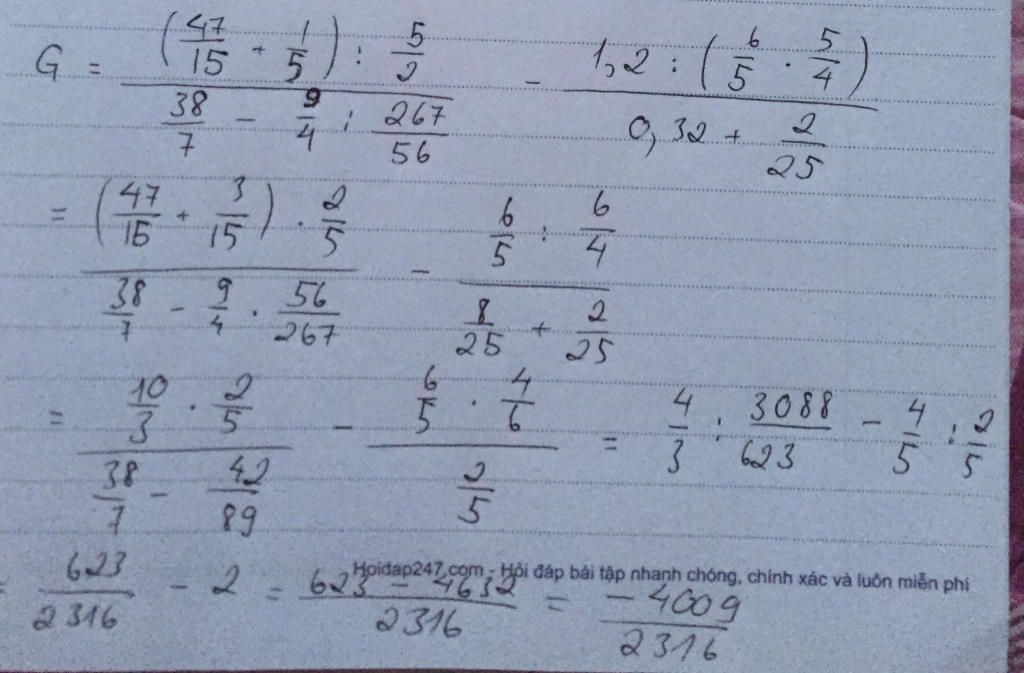 G = ((47/15 + 1/5) : 5/2) / (38/7 - 9/4 : 267/56) - (1,2 : (6/5 . 5/4)) / (0,32 + 2/25)
= ((47/15 + 3/15) . 2/5) / (38/7 - 9/4 . 56/267) - (6/5 : 6/4) / (8/25 + 2/25)
= (10/3 . 2/5) / (38/7 - 42/89) - (6/5 . 4/6) / (2/5) = 4/3 : 3088/623 - 4/5 : 2/5
= 623/2316 - 2 = (623 - 4632)/2316 = -4009/2316
Hoidap247.com - Hỏi đáp bài tập nhanh chóng, chính xác và luôn miễn phí